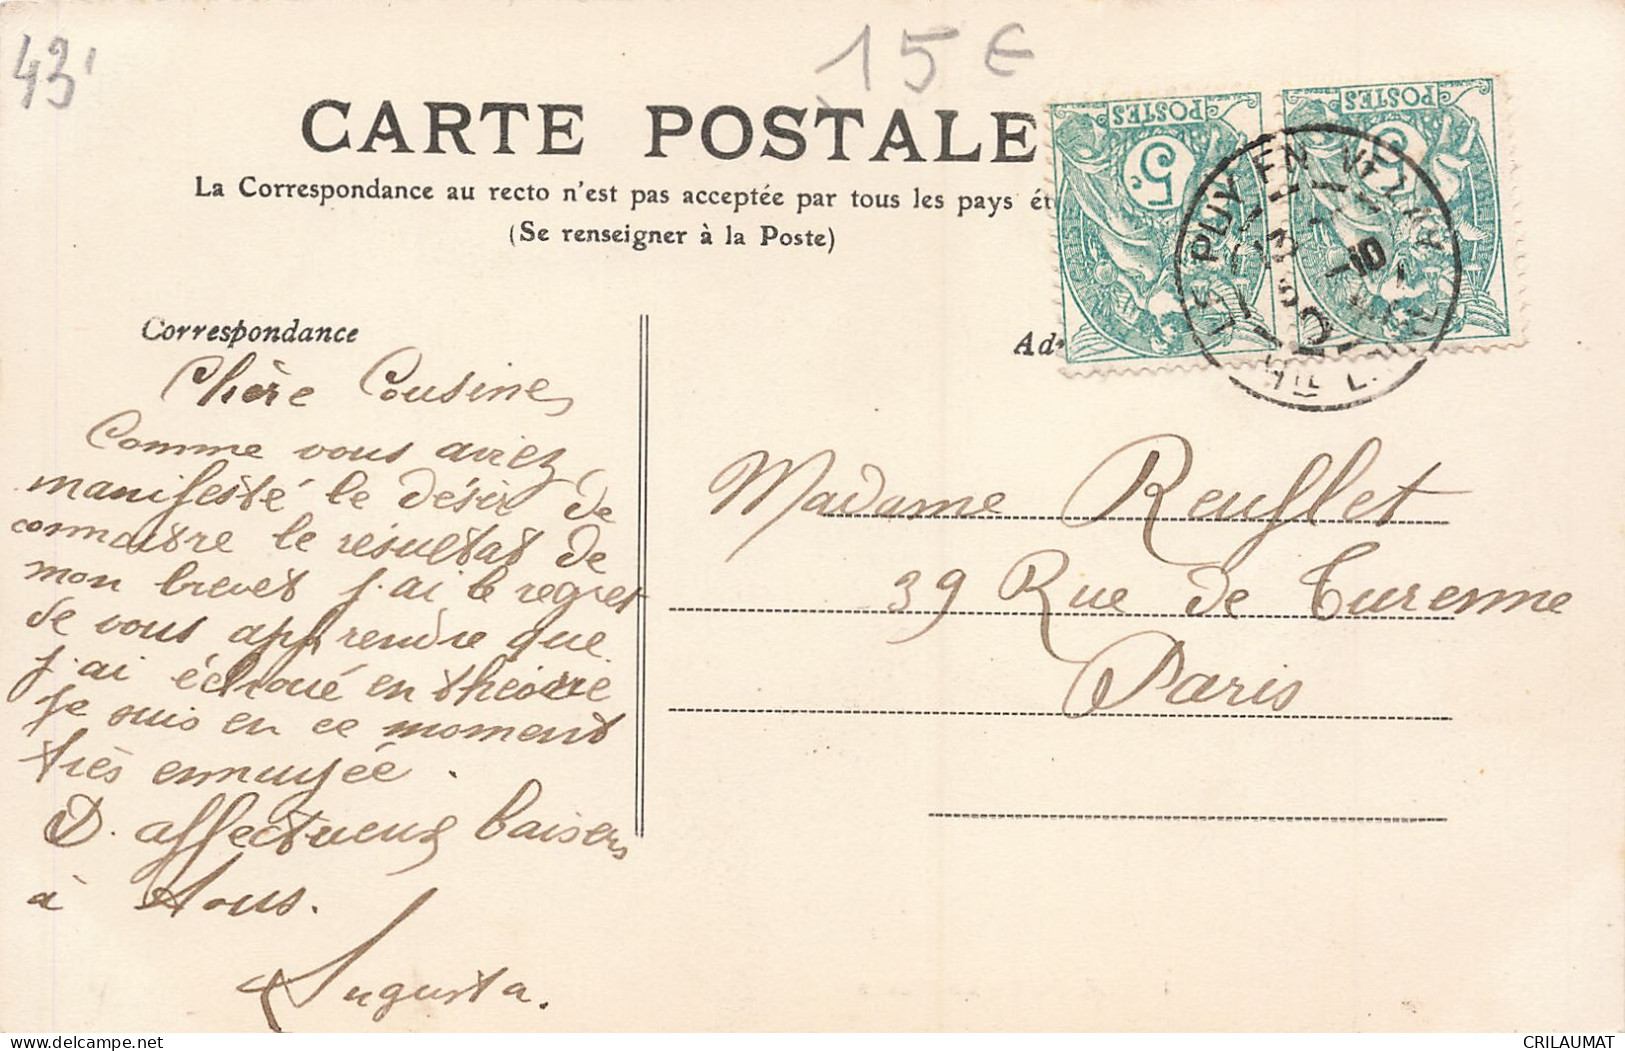 43'
15 €
CARTE POSTALE
La Correspondance au recto n'est pas acceptée par tous les pays ét
(Se renseigner à la Poste)
POSTES
5c
POSTES
5
LE PUY EN VELAY
10
HTE LOIRE
Correspondance
Ad
Chère Cousine,
Comme vous aviez
manifesté le désir de
connaitre le résultat de
mon brevet j'ai le regret
de vous apprendre que
j'ai échoué en théorie
je suis en ce moment
très ennuyée.
D. affectueux baisers
à tous.
Augusta.
Madame Reuflet
39 Rue de Turenne
Paris
CRILAUMAT